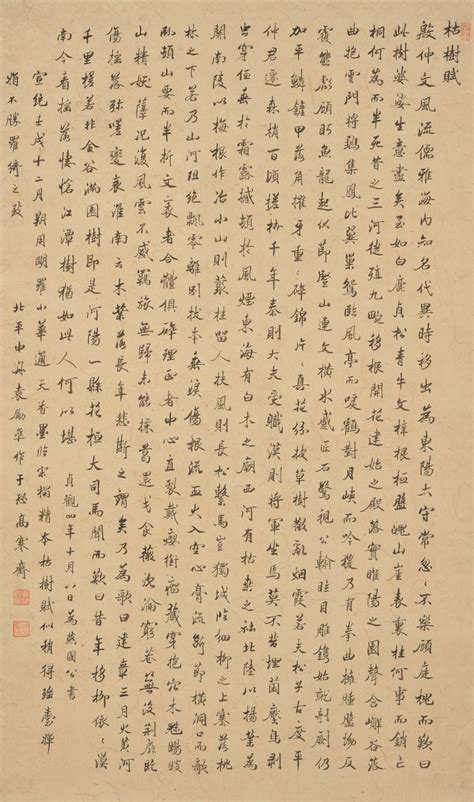 枯樹賦
殷仲文風流儒雅海內知名代異時移出為東陽太守常忽忽不樂顧庭槐而歎曰
此樹婆娑生意盡矣至如白鹿貞松青牛文梓根柢盤魄山崖表裏桂何事而銷亡
桐何為而半死昔之三河徙殖九畹移根開花建始之殿落實睢陽之園聲含嶰谷
曲抱雲門將鶵集鳳比翼巢鴛臨風亭而唳鶴對月峽而吟猨乃有拳曲擁腫盤坳反
覆熊彪顧盼魚龍起伏節豎山連文橫水蹙匠石驚視公輸眩目雕鐫始就剞劂仍
加平鱗鏟甲落角摧牙重重碎錦片片真花紛披草樹散亂煙霞若夫松子古度平
仲君遷森梢百頃槎枿千年秦則大夫受職漢則將軍坐焉莫不苔埋菌壓鳥剝
虫穿低垂於霜露撼頓於風煙東海有白木之廟西河有枯桑之社北陸以楊葉為
關南陵以梅根作冶小山則叢桂留人扶風則長松繫馬豈獨城臨細柳之上塞落桃
林之下若乃山河阻絕飄零離別拔本垂淚傷根流血火入空心膏流斷節橫洞口而敧
臥頓山要而半折文袤者合體俱碎理正者中心直裂戴癭銜瘤藏穿抱穴木魅睗睒
山精妖孽況復風雲不感羈旅無歸未能採葛還成食薇沈淪窮巷蕪沒荊扉既
傷搖落彌嗟變衰淮南云木葉落長年悲斯之謂矣乃為歌曰建章三月火黃河
千里槎若非金谷滿園樹即是河陽一縣花桓大司馬聞而歎曰昔年移柳依依漢
南今看搖落悽愴江潭樹猶如此人何以堪 貞觀四年十月八日為燕國公書
宣統壬戌十二月朔用明羅小華通天香墨臨宋搨精本枯樹賦似稍得瑤臺嬋
娟不勝羅綺之致 北平中舟袁勵準作于恐高寒齋